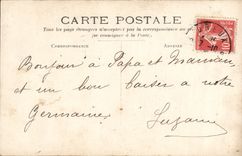 CARTE POSTALE
Tous les pays étrangers n'acceptent pas la correspondance au recto
(se renseigner à la Poste).
CORRESPONDANCE
ADRESSE
Bonjour à Papa et Maman
et un bon baiser a notre
Germaine
Suzanne